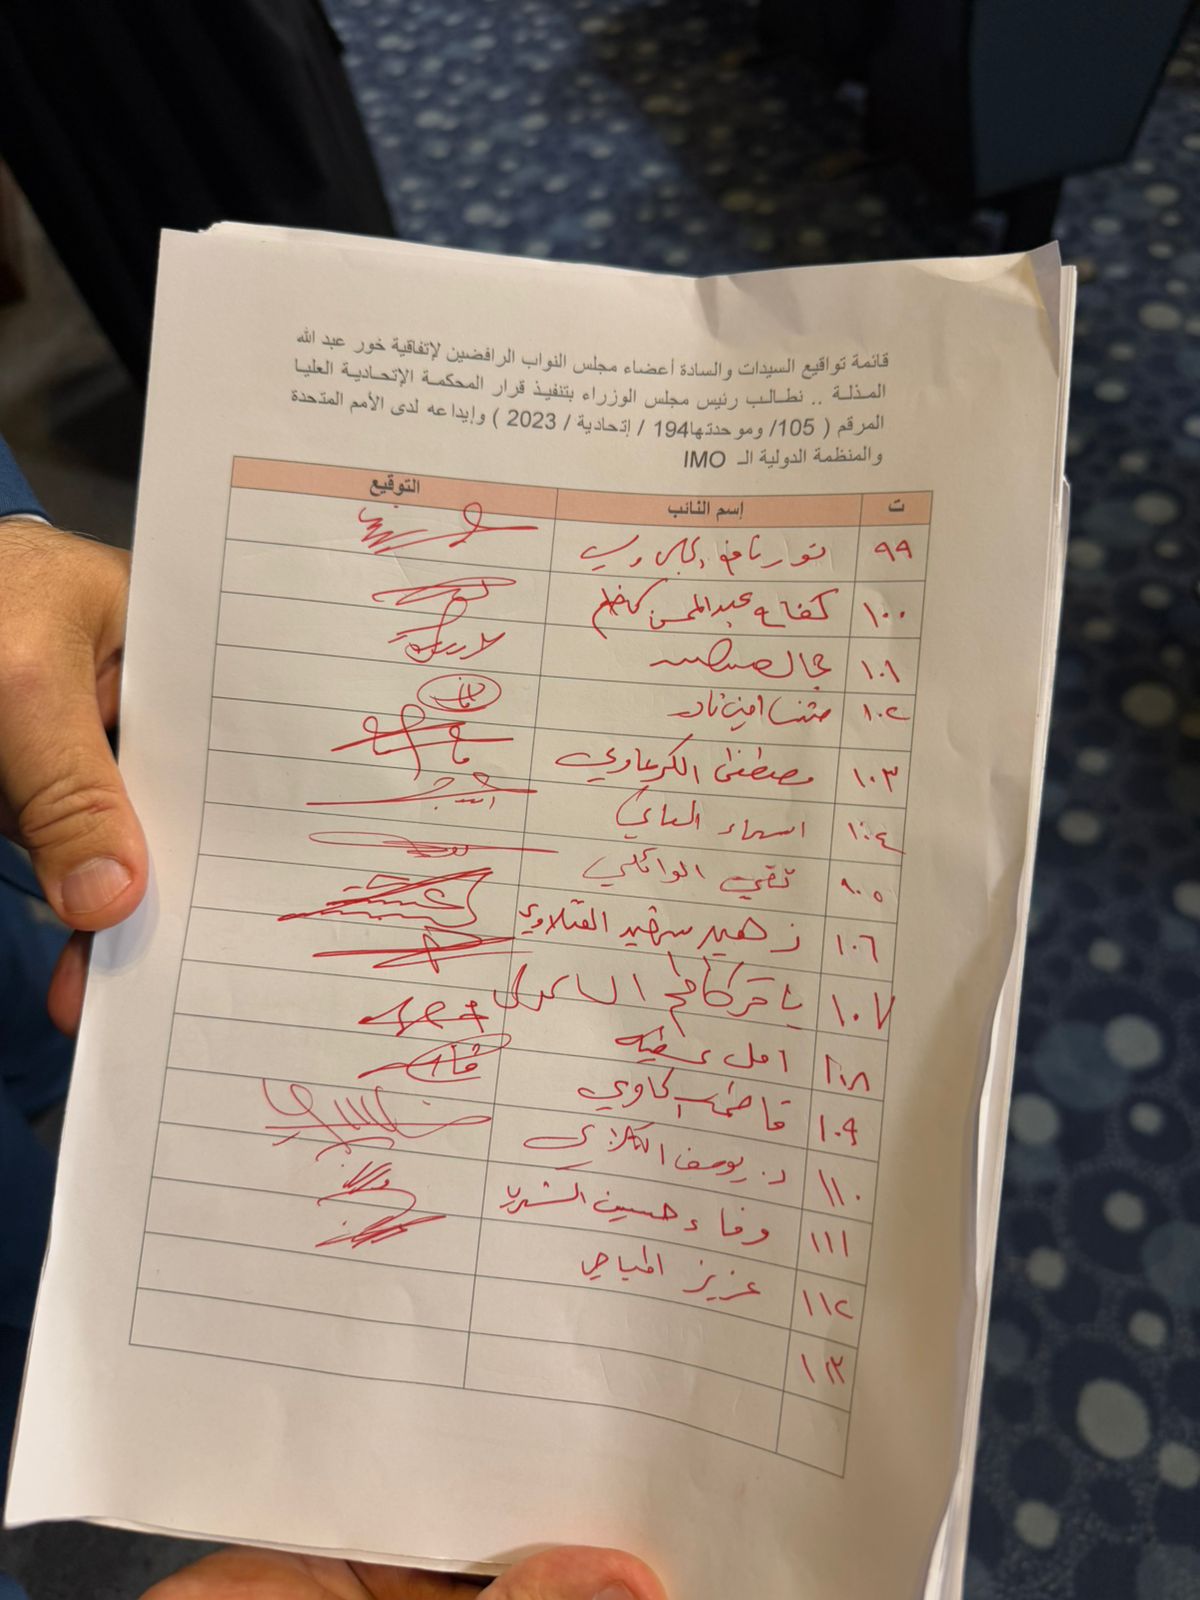 قائمة تواقيع السيدات والسادة أعضاء مجلس النواب الرافضين لإتفاقية خور عبد الله
المذلة .. نطالب رئيس مجلس الوزراء بتنفيذ قرار المحكمة الإتحادية العليا
المرقم ( 105/ وموحدتها194 / إتحادية / 2023 ) وإيداعه لدى الأمم المتحدة
والمنظمة الدولية الـ IMO
ت إسم النائب التوقيع
٩٩ نور نافع
١٠٠ كفاح عبدالمحسن كاظم
١٠١
١٠٢ مثنى امين نادر
١٠٣ مصطفى الكرعاوي
١٠٤ اسماء
١٠٥ تقي الوائلي
١٠٦ زهير شهيد الفتلاوي
١٠٧ باقر كاظم الساعدي
١٠٨ امل عطية
١٠٩ فاطمة
١١٠ د. يوسف الكلابي
١١١ وفاء حسين
١١٢ عزيز المياحي
١١٣